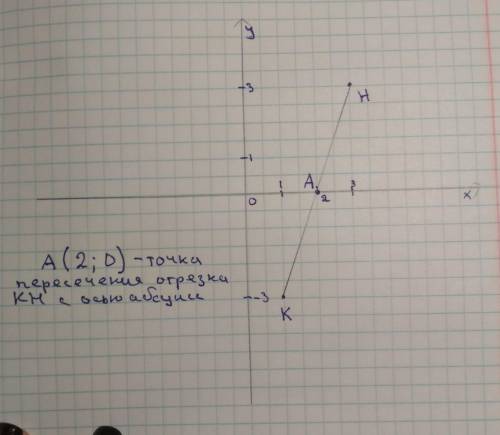 y
3
H
1
A
1
3
0
2
x
A(2;0) - точка
пересечения отрезка
КН с осью абсцисс
-3
K